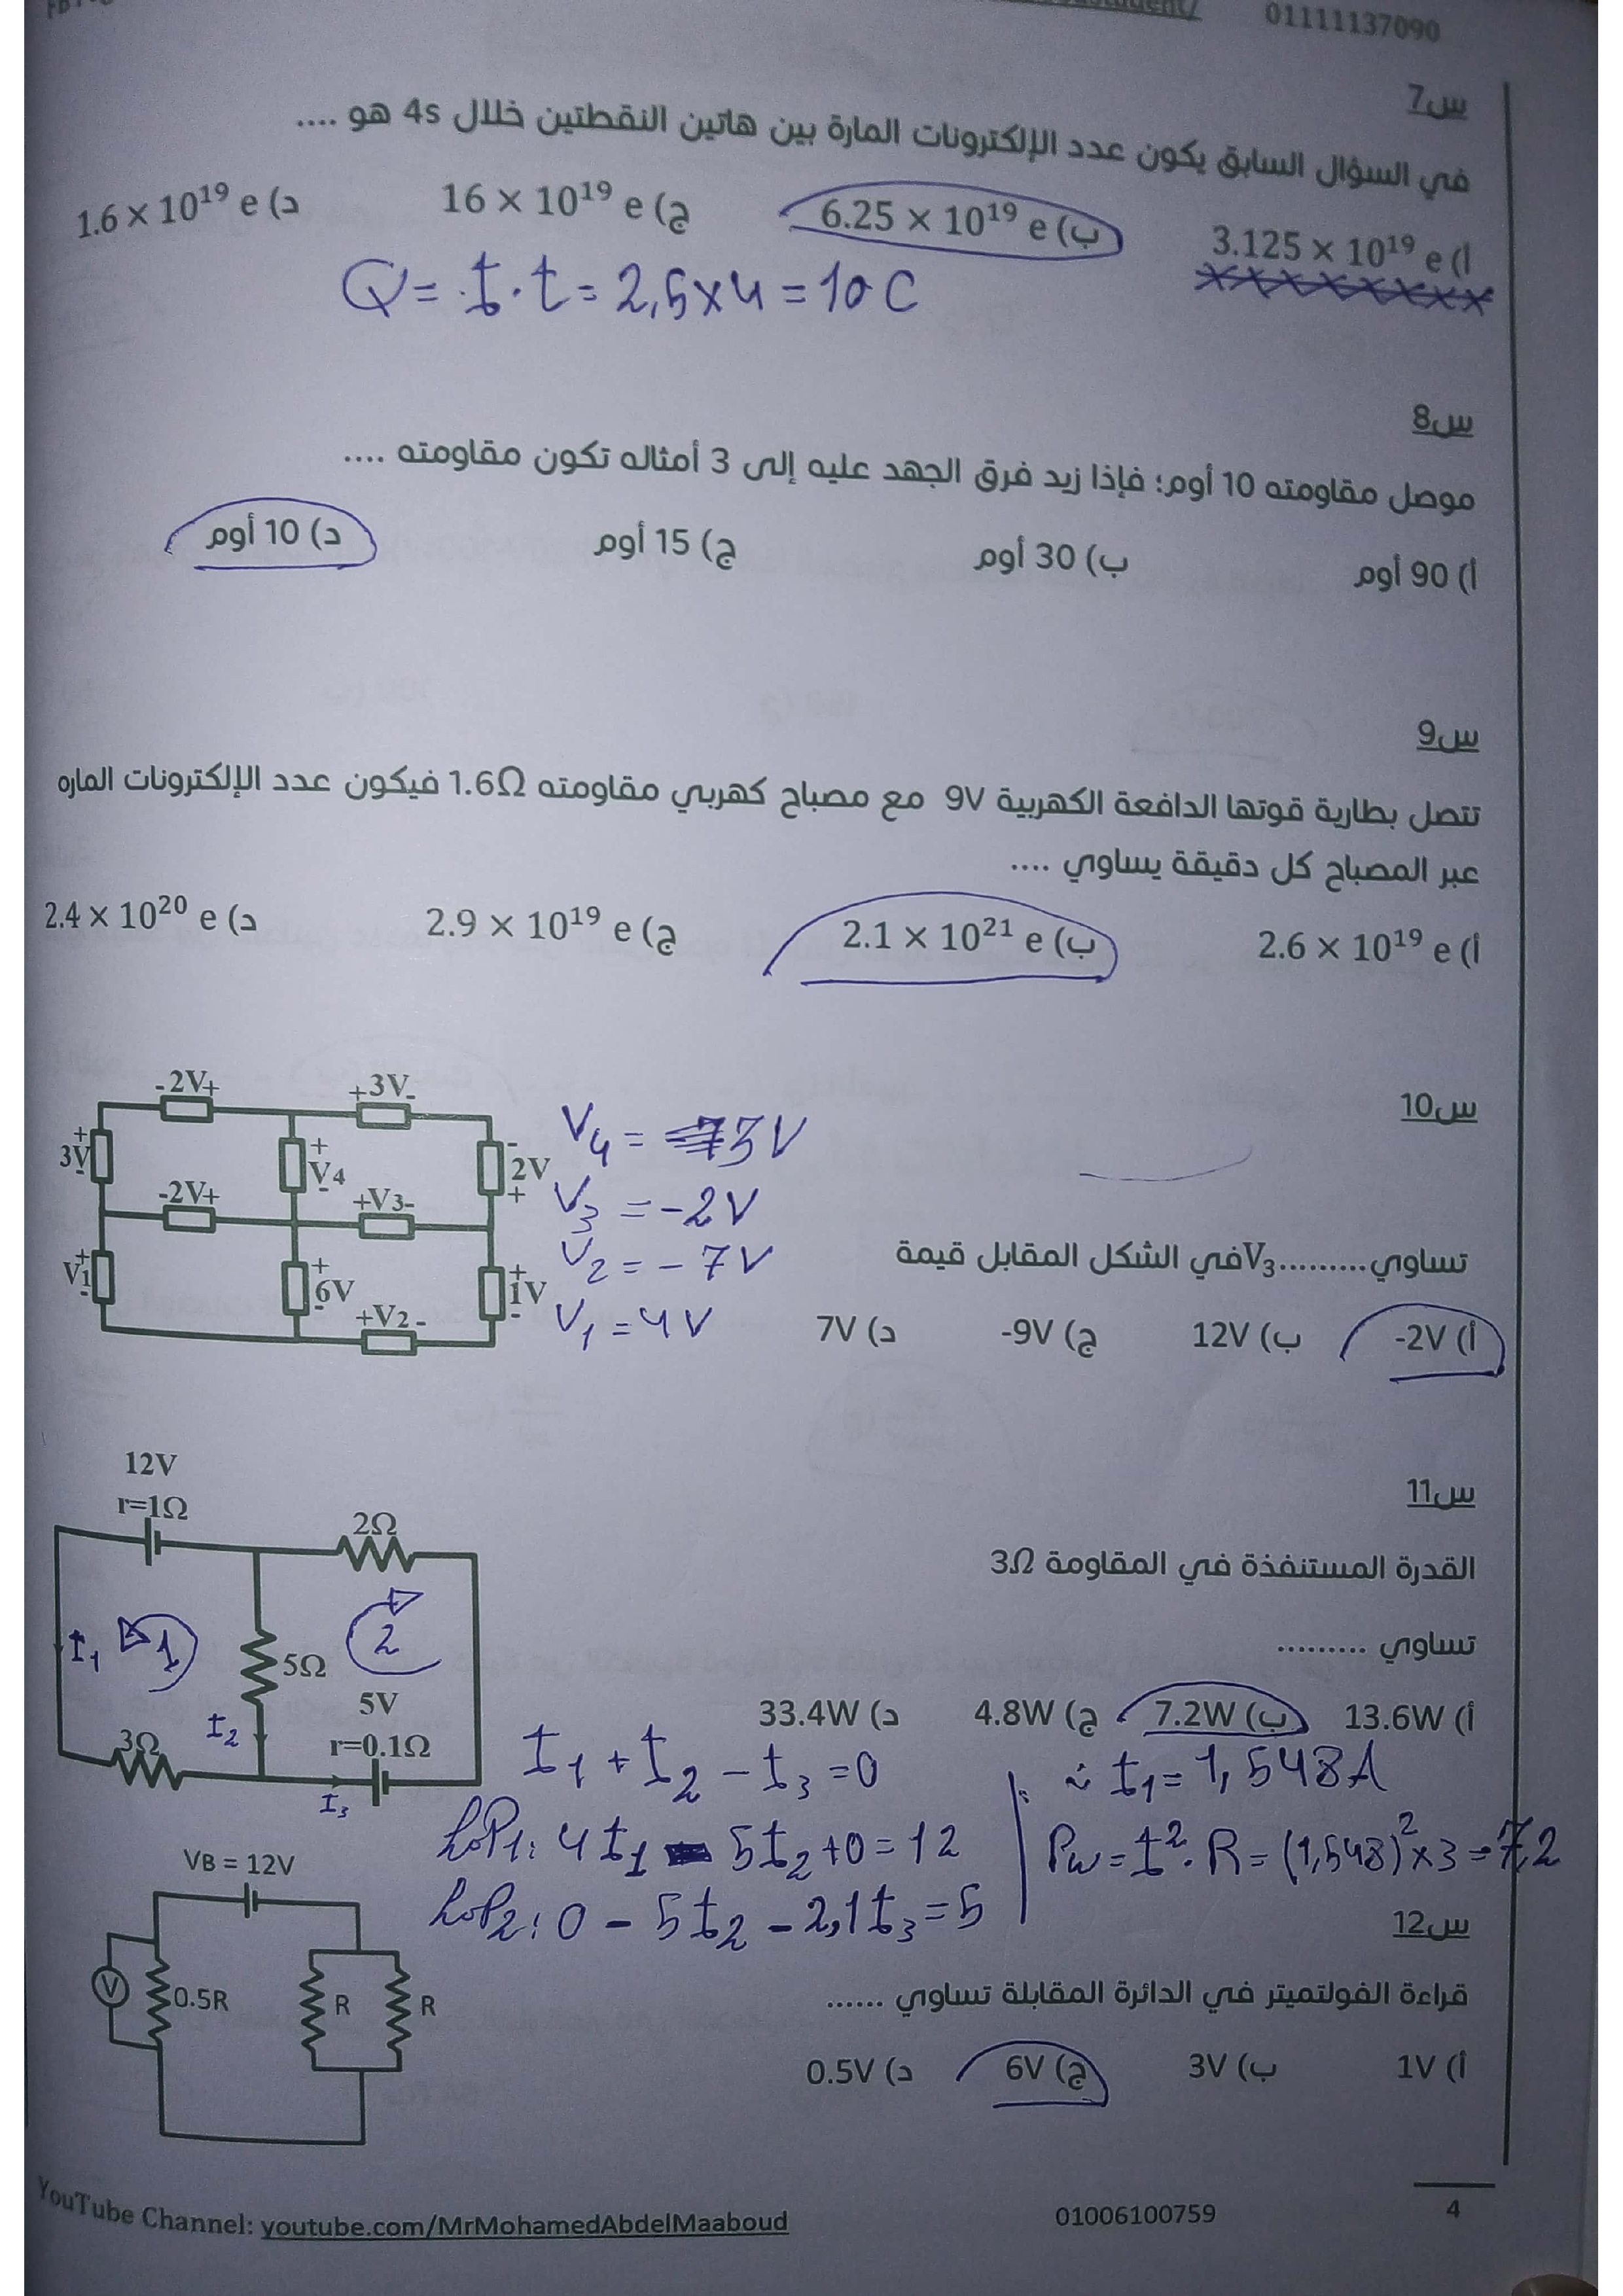 01111137090
س7
في السؤال السابق يكون عدد الإلكترونات المارة بين هاتين النقطتين خلال 4s هو ....
أ) 3.125 × 10¹⁹ e
ب) 6.25 × 10¹⁹ e
ج) 16 × 10¹⁹ e
د) 1.6 × 10¹⁹ e
Q = I . t = 2,5 x 4 = 10 C
س8
موصل مقاومته 10 أوم؛ فإذا زيد فرق الجهد عليه إلى 3 أمثاله تكون مقاومته ....
أ) 90 أوم
ب) 30 أوم
ج) 15 أوم
د) 10 أوم
س9
تتصل بطارية قوتها الدافعة الكهربية 9V مع مصباح كهربي مقاومته 1.6Ω فيكون عدد الإلكترونات الماره
عبر المصباح كل دقيقة يساوي ....
أ) 2.6 × 10¹⁹ e
ب) 2.1 × 10²¹ e
ج) 2.9 × 10¹⁹ e
د) 2.4 × 10²⁰ e
س10
-2V+
+3V-
+ 3V -
+ V4 -
- 2V +
-2V+
+V3-
+ V1 -
+ 6V -
+ 1V -
+V2-
V4 = 3V
V3 = -2V
V2 = -7V
V1 = 4V
تساوي.........V3في الشكل المقابل قيمة
أ) -2V
ب) 12V
ج) -9V
د) 7V
س11
القدرة المستنفذة في المقاومة 3Ω
تساوي .........
أ) 13.6W
ب) 7.2W
ج) 4.8W
د) 33.4W
12V
r=1Ω
2Ω
I1
1
2
5Ω
I2
5V
r=0.1Ω
3Ω
I3
I1 + I2 - I3 = 0
LoP1: 4I1 - 5I2 + 0 = 12
LoP2: 0 - 5I2 - 2,1I3 = 5
∴ I1 = 1,548A
Pw = I² . R = (1,548)² x 3 = 7,2
س12
قراءة الفولتميتر في الدائرة المقابلة تساوي ......
أ) 1V
ب) 3V
ج) 6V
د) 0.5V
VB = 12V
V
0.5R
R
R
YouTube Channel: youtube.com/MrMohamedAbdelMaaboud
01006100759
4